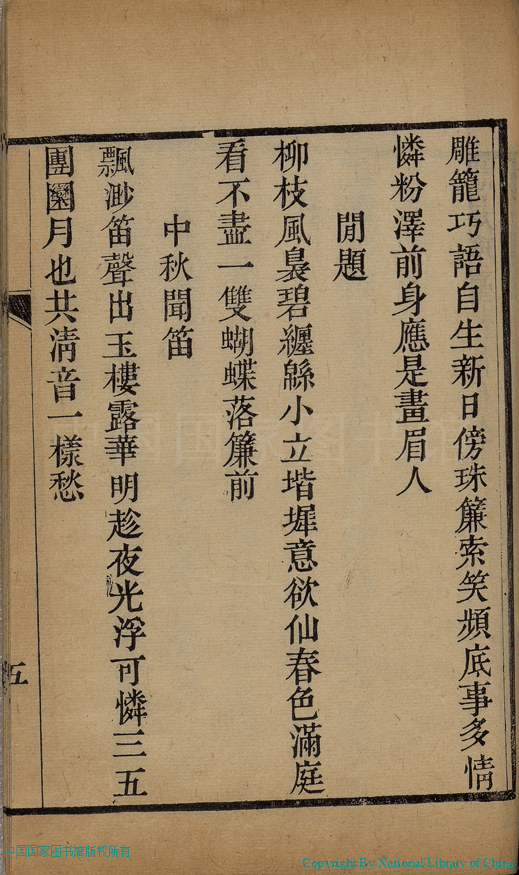 雕籠巧語自生新日傍珠簾索笑頻底事多情
憐粉澤前身應是畫眉人
閒題
柳枝風裊碧纏緜小立堦墀意欲仙春色滿庭
看不盡一雙蝴蝶落簾前
中秋聞笛
飄渺笛聲出玉樓露華明趁夜光浮可憐三五
團圞月也共淸音一樣愁
五
中国国家图书馆版权所有
Copyright By National Library of China